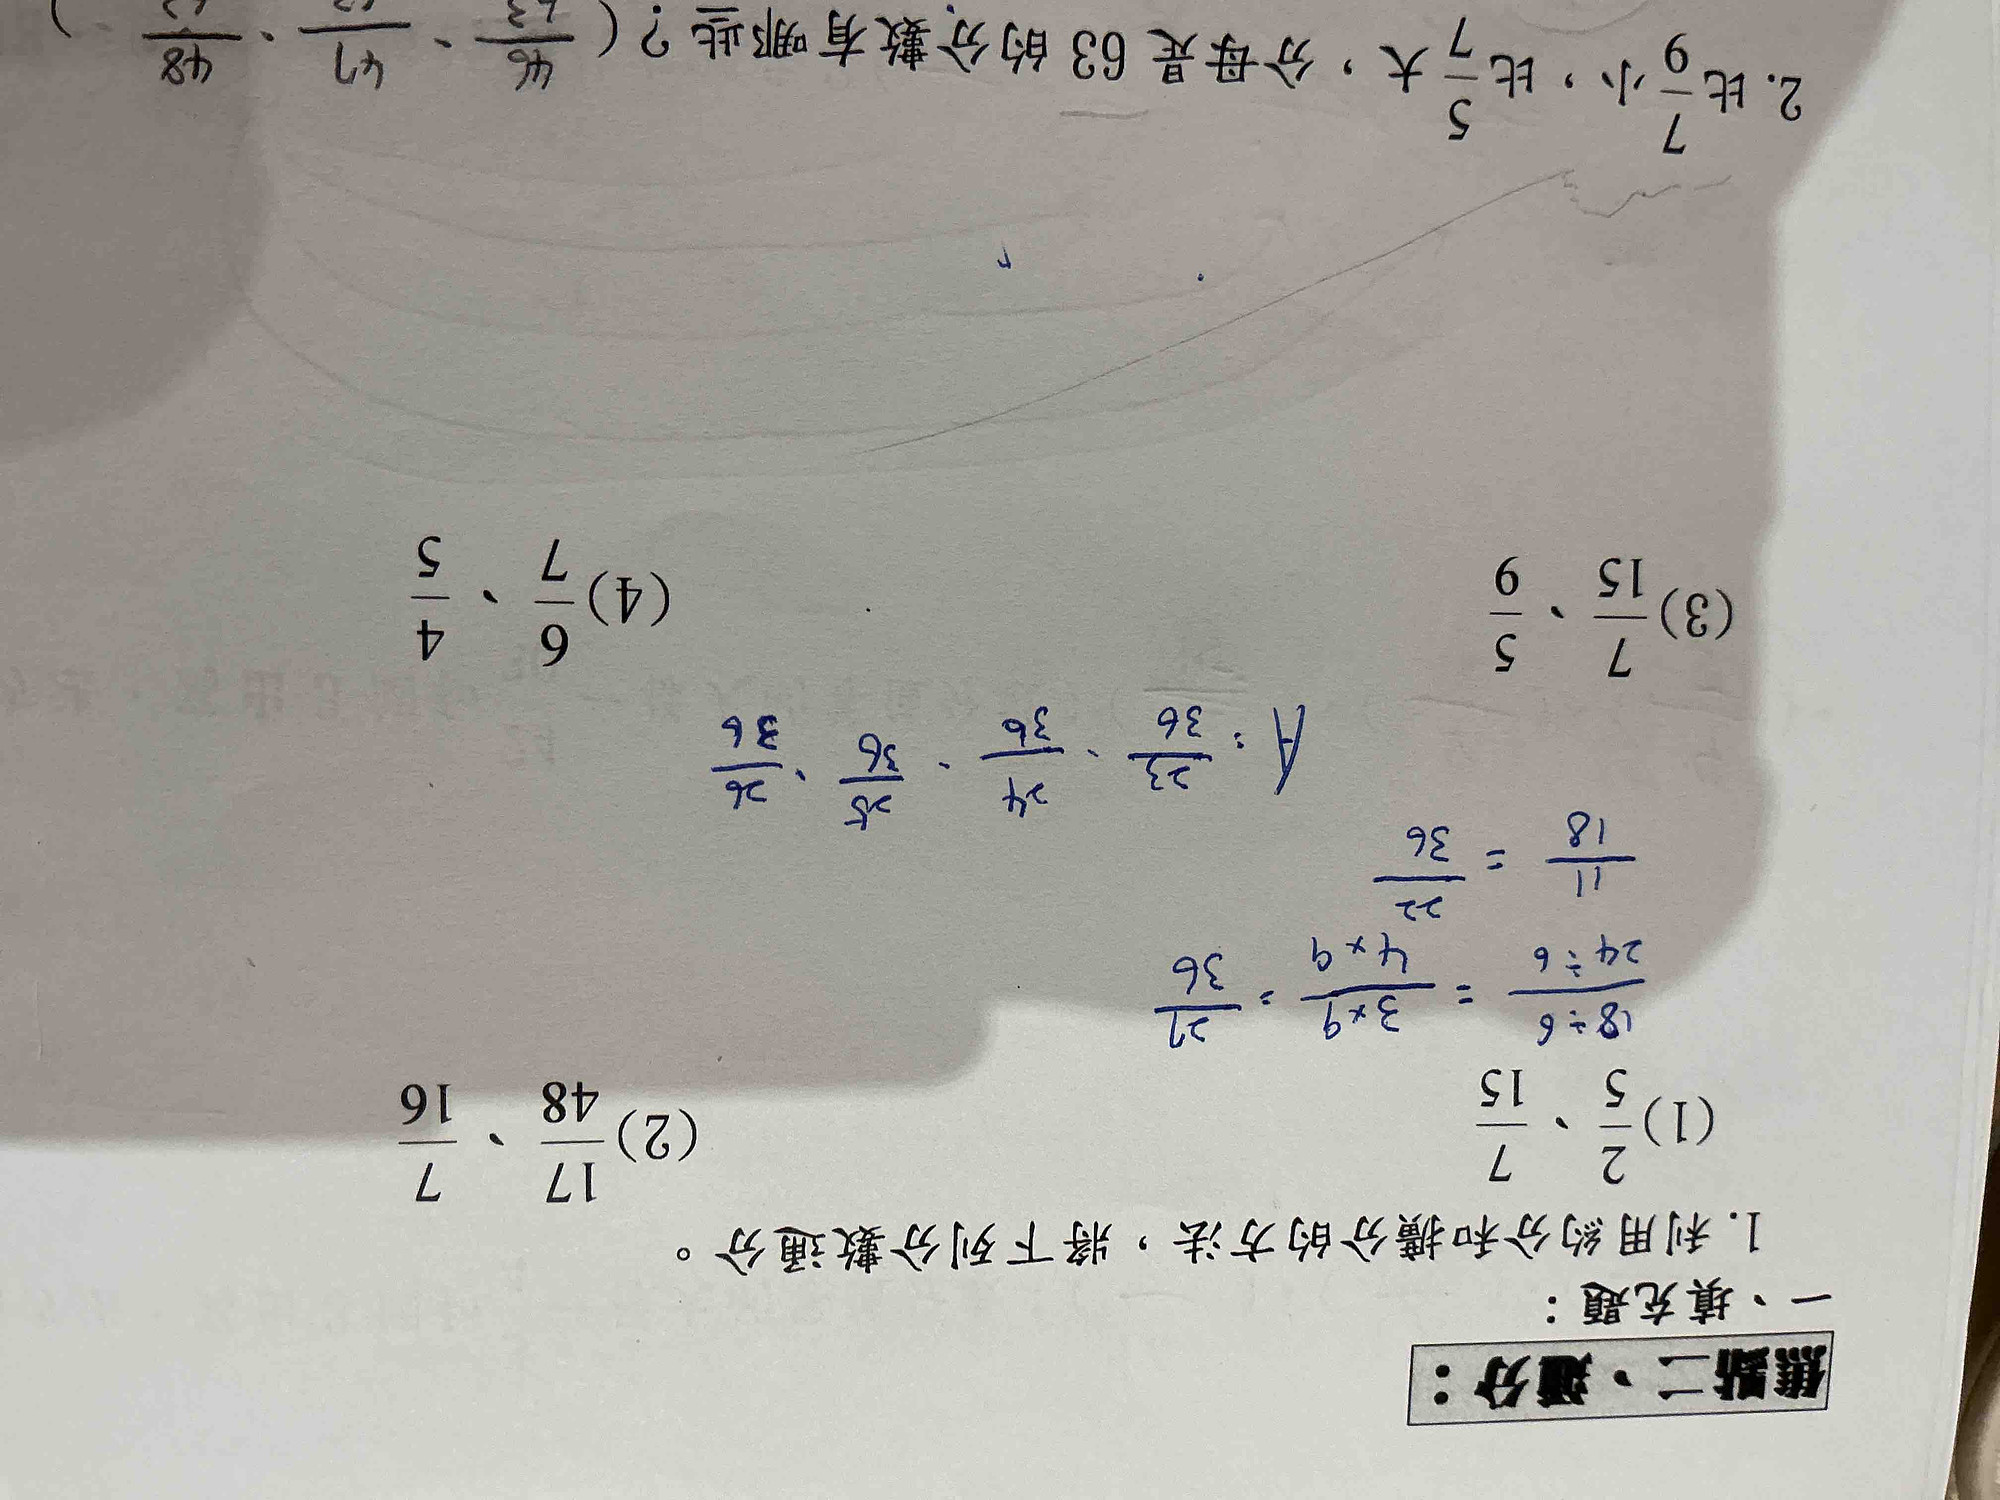 焦點二、通分：
一、填充題：
1. 利用約分和擴分的方法，將下列分數通分。
(1) 2/5、7/15 (2) 17/48、7/16
18÷6/24÷6 = 3×9/4×9 = 27/36
11/18 = 22/36
A: 23/36、24/36、25/36、26/36
(3) 7/15、5/9 (4) 6/7、4/5
2. 比7/9小，比5/7大，分母是63的分數有哪些？( 46/63、47/63、48/63 )